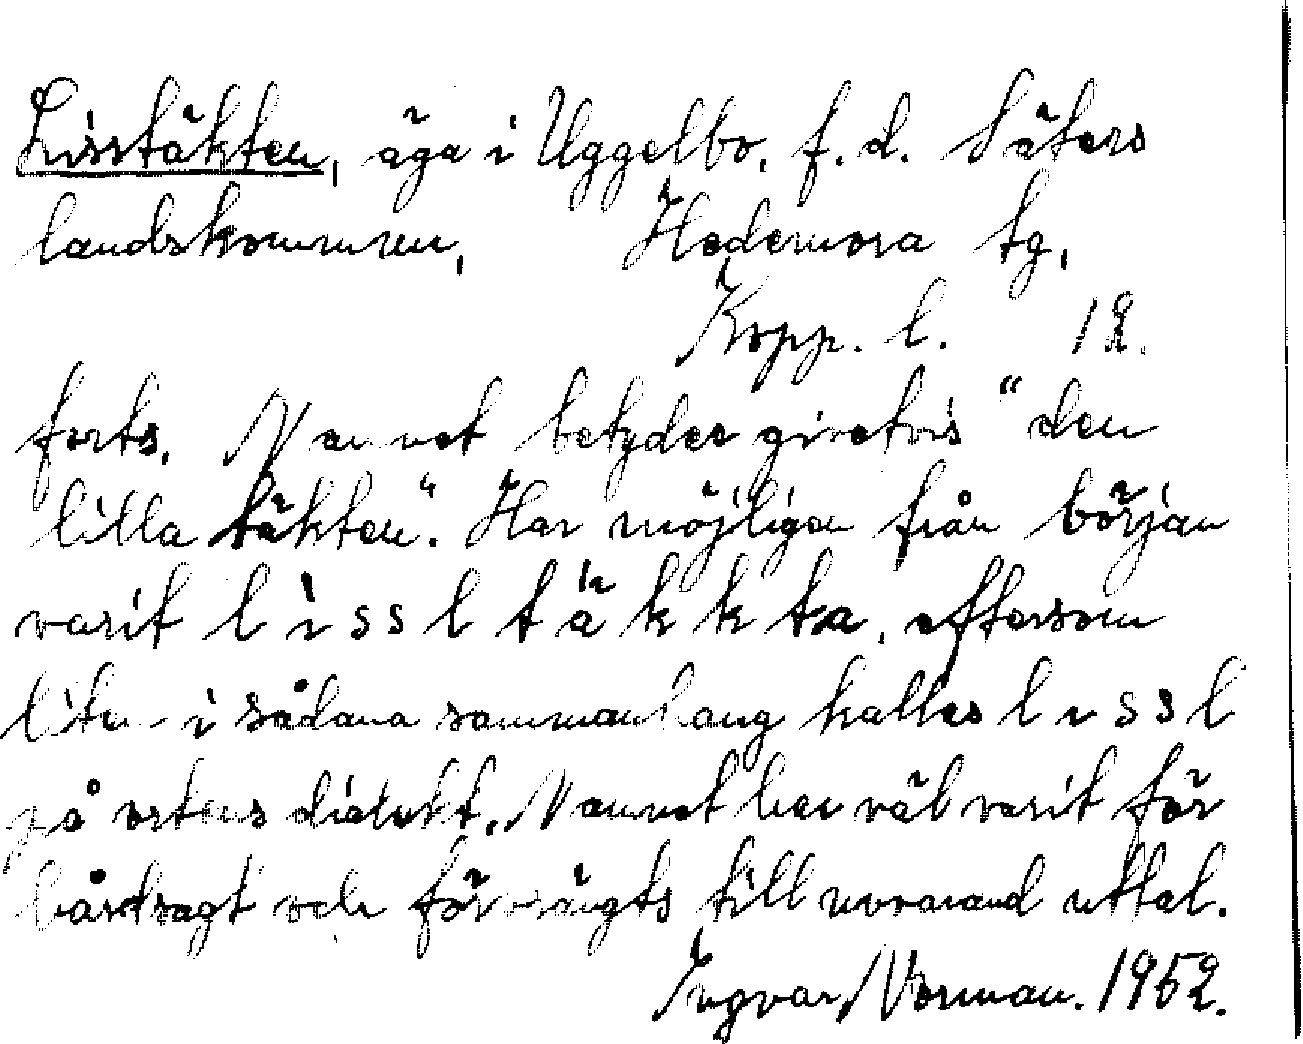 Lisstäkten, äga i Uggelbo, f. d. Säters
landskommun, Hedemora tg,
Kopp. l. 12.
forts. Namnet betyder givetvis "den
lilla täkten". Har möjligen från början
varit l i s s l t ä k k t a, eftersom
liten i sådana sammanhang kallas l i s s l
på ortens dialekt. Namnet har väl varit för
hårdsagt och förvrängts till nuvarand uttal.
Ingvar Norman. 1952.